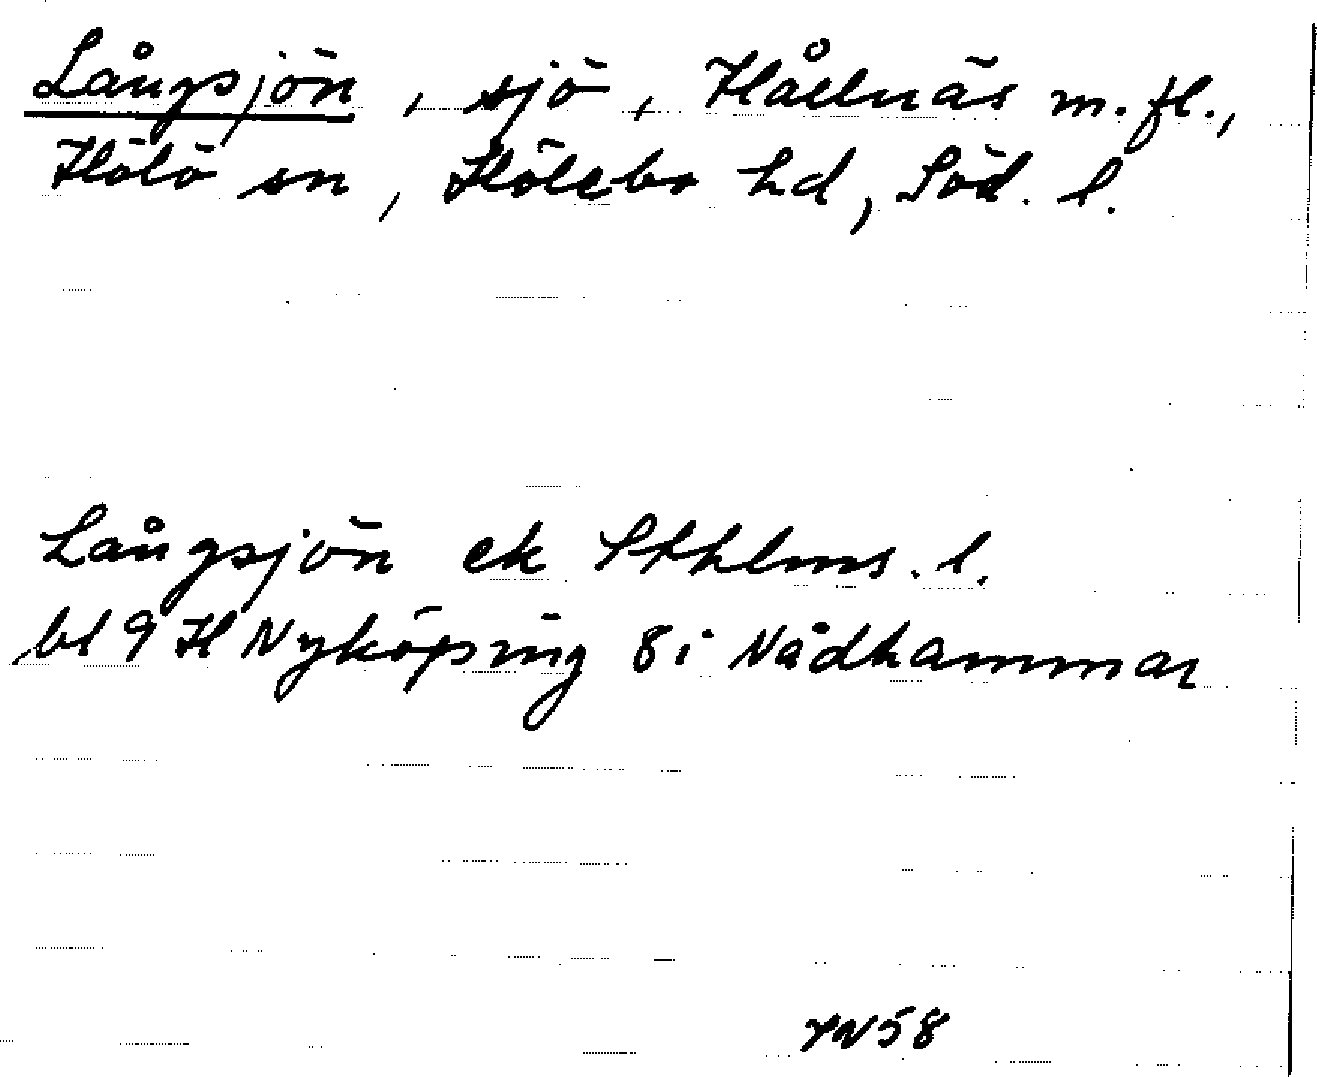 Långsjön, sjö, Hållnäs m.fl.,
Hölö sn, Hölebo hd, Söd. l.
Långsjön ek Sthlms. l.
bl 9 H Nyköping 8 i Nådhammar
YN58